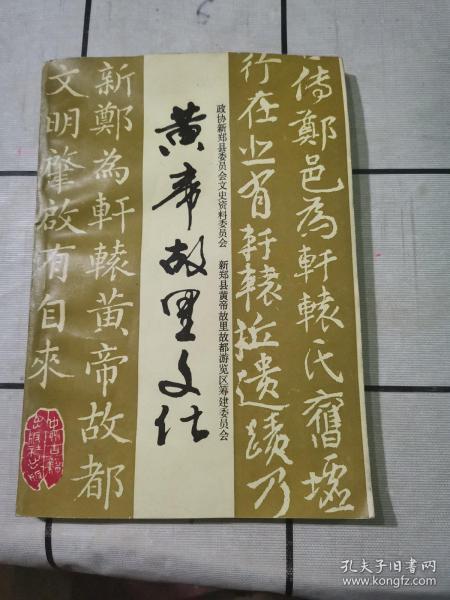 傳鄭邑為軒轅氏舊墟
行在北有軒轅坵遺蹟乃
政协新郑县委员会文史资料委员会 新郑县黄帝故里故都游览区筹建委员会
黄帝故里文化
新鄭為軒轅黃帝故都
文明肇啟有自來
中州古籍
出版社出版
孔夫子旧书网
www.kongfz.com